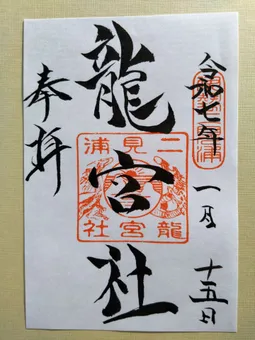 令和七年
一月
十五日
龍宮社
二見浦
龍宮社
奉拝